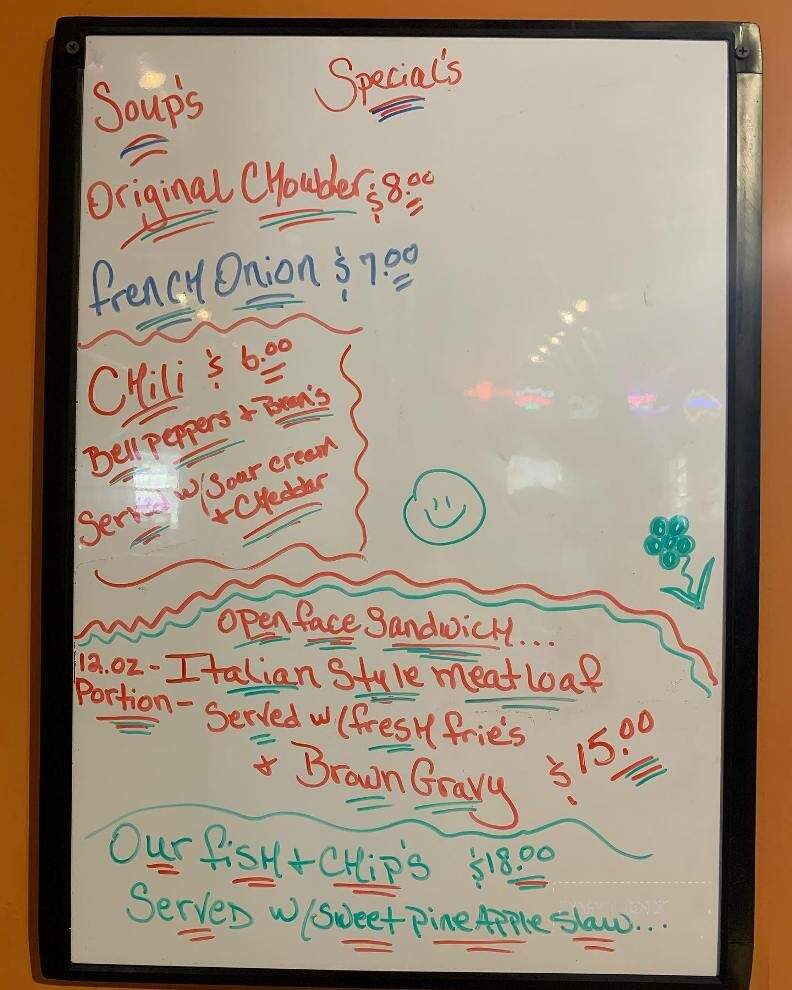 Soup's Special's
Original CHowder $8.00
French Onion $7.00
CHili $6.00
Bell peppers + Bean's
Served w/Sour cream
+ CHeddar
Open face Sandwich...
12.oz - Italian Style meatloaf
Portion - Served w/fresH frie's
+ Brown Gravy $15.00
Our fisH + CHip's $18.00
Served w/sweet pineApple slaw...